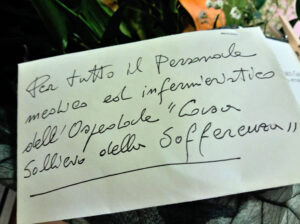 Per tutto il Personale
medico ed infermieristico
dell'Ospedale "Casa
Sollievo della Sofferenza"